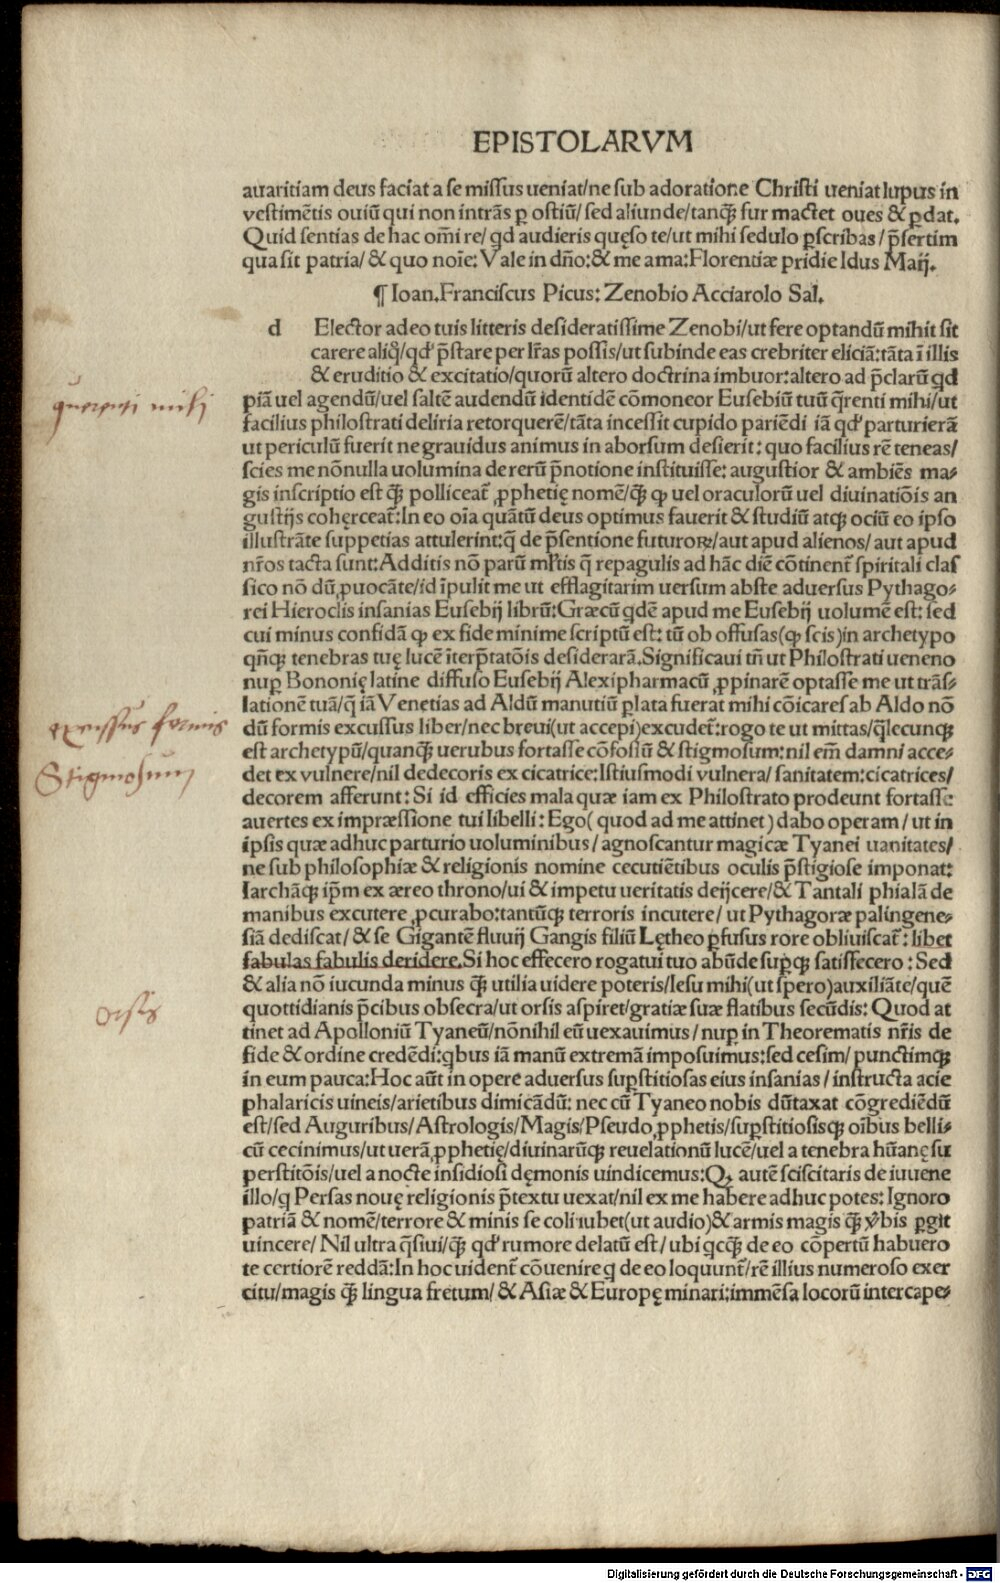 EPISTOLARVM
auaritiam deus faciat a se missus ueniat/ne sub adoratione Christi ueniat lupus in
vestimētis ouiū qui non intrās ꝑ ostiū/ sed aliunde/tanq̄ȝ fur mactet oues & ꝑdat.
Quid sentias de hac om̄i re/ qd audieris quęso te/ut mihi sedulo ꝑscribas/p̄sertim
qua sit patria/& quo noīe: Vale in dn̄o:& me ama:Florentiæ pridie Idus Maij.
¶ Ioan.Franciscus Picus: Zenobio Acciarolo Sal.
d Elector adeo tuis litteris desideratissime Zenobi/ut fere optandū mihit sit
carere aliq̄/qd' p̄stare per lr̄as possis/ut subinde eas crebriter eliciā:tāta ī illis
& eruditio & excitatio/quorū altero doctrina imbuor:altero ad p̄clarū qd
piā uel agendū/uel saltē audendū identidē cōmoneor Eusebiū tuū q̄renti mihi/ut
facilius philostrati deliria retorquerē/tāta incessit cupido pariēdi iā qd' parturierā
ut periculū fuerit ne grauidus animus in aborsum desierit: quo facilius rē teneas/
scies me nōnulla uolumina de rerū p̄notione instituisse: augustior & ambiēs ma-
gis inscriptio est q̄ȝ polliceat̄ ꝓphetię nomē/q̄ȝ ꝙ uel oraculorū uel diuinatiōis an
gustijs cohęrceat̄:In eo oīa quātū deus optimus fauerit & studiū atqȝ ociū eo ipso
illustrāte suppetias attulerint:q̄ de p̄sentione futuroꝝ/aut apud alienos/ aut apud
nr̄os tacta sunt:Additis nō parū ml'tis q̄ repagulis ad hāc diē cōtinent̄ spiritali clas
sico nō dū ꝓuocāte/id īpulit me ut efflagitarim uersum abste aduersus Pythago-
rei Hieroclis insanias Eusebij librū:Græcū qdē apud me Eusebij uolumē est: sed
cui minus confidā ꝙ ex fide minime scriptū est: tū ob offusas(ꝙ scis)in archetypo
qn̄qȝ tenebras tuę lucē īterp̄tatōis desiderarā.Significaui tn̄ ut Philostrati ueneno
nuꝑ Bononię latine diffuso Eusebij Alexipharmacū ꝓpinarē optasse me ut trās-
lationē tuā/q̄ iā Venetias ad Aldū manutiū ꝑlata fuerat mihi cōicares ab Aldo nō
dū formis excussus liber/nec breui(ut accepi)excudet̄:rogo te ut mittas/q̄lecunqȝ
est archetypū/quanqȝ uerubus fortasse cōfossū & stigmosum:nil em̄ damni acce-
det ex vulnere/nil dedecoris ex cicatrice:Istiusmodi vulnera/ sanitatem:cicatrices/
decorem afferunt: Si id efficies mala quæ iam ex Philostrato prodeunt fortasse
auertes ex impræssione tui libelli: Ego( quod ad me attinet) dabo operam/ ut in
ipsis quæ adhuc parturio uoluminibus/ agnoscantur magicæ Tyanei uanitates/
ne sub philosophiæ & religionis nomine cecutiētibus oculis p̄stigiose imponat:
Iarchāqȝ ip̄m ex æreo throno/ui & impetu ueritatis deijcere/& Tantali phialā de
manibus excutere ꝓcurabo:tantūqȝ terroris incutere/ ut Pythagoræ palingene-
siā dediscat/ & se Gigantē fluuij Gangis filiū Lętheo ꝑfusus rore obliuiscat̄: libet
fabulas fabulis deridere.Si hoc effecero rogatui tuo abūde suꝑqȝ satisfecero: Sed
& alia nō iucunda minus q̄ȝ utilia uidere poteris/Iesu mihi(ut sp̄ero)auxiliāte/quē
quottidianis p̄cibus obsecra/ut orsis aspiret/gratiæ suæ flatibus secūdis: Quod at
tinet ad Apolloniū Tyaneū/nōnihil eū uexauimus/ nuꝑ in Theorematis nr̄is de
fide & ordine credēdi:qbus iā manū extremā imposuimus:sed cesim/ punctimqȝ
in eum pauca:Hoc aūt in opere aduersus suꝑstitiosas eius insanias/ instructa acie
phalaricis uineis/arietibus dimicādū: nec cū Tyaneo nobis dūtaxat cōgrediēdū
est/sed Auguribus/Astrologis/Magis/Pseudo ꝓphetis/suꝑstitiosisqȝ oībus belli-
cū cecinimus/ut uerā ꝓphetię/diuinarūqȝ reuelationū lucē/uel a tenebra hūanę su
perstitōis/uel a nocte insidiosi dęmonis uindicemus:Q̨ autē sciscitaris de iuuene
illo/q Persas nouę religionis p̄textu uexat/nil ex me habere adhuc potes: Ignoro
patriā & nomē/terrore & minis se coli iubet(ut audio)& armis magis q̄ȝ v̄bis ꝑgit
uincere/ Nil ultra q̄siui/q̄ȝ qd' rumore delatū est/ ubi qcqȝ de eo cōpertū habuero
te certiorē reddā:In hoc uident̄ cōuenire q de eo loquunt̄/rē illius numeroso exer
citu/magis q̄ȝ lingua fretum/ & Asiæ & Europę minari:immēsa locorū intercape-
querenti mihi
excussus formis
Stigmosum
orsis
Digitalisierung gefördert durch die Deutsche Forschungsgemeinschaft - DFG